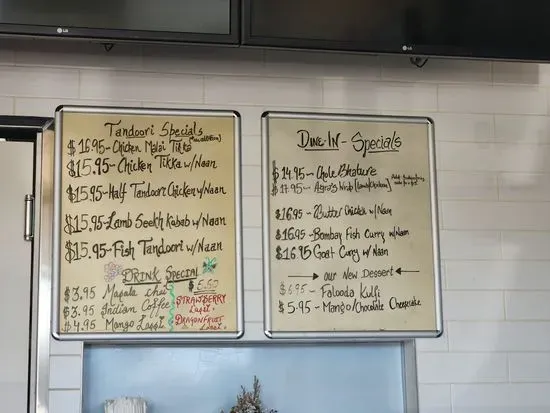 LG
LG
Tandoori Specials
$16.95 - Chicken Malai Tikka
$15.95 - Chicken Tikka w/Naan
$15.95 - Half Tandoori Chicken w/Naan
$15.95 - Lamb Seekh Kabab w/Naan
$15.95 - Fish Tandoori w/Naan
DRINK SPECIAL
$3.95 Masala chai
$3.95 Indian Coffee
$4.95 Mango Lassi
STRAWBERRY
Lassi.
DRAGONFRUIT
Lassi.
DINE-IN - Specials
$14.95 - Chole Bhature
$16.95 - Butter Chicken w/Naan
$16.95 - Bombay Fish Curry w/Naan
$16.95 Goat Curry w/Naan
our New Dessert
$6.95 - Falooda Kulfi
$5.95 - Mango/Chocolate Cheesecake